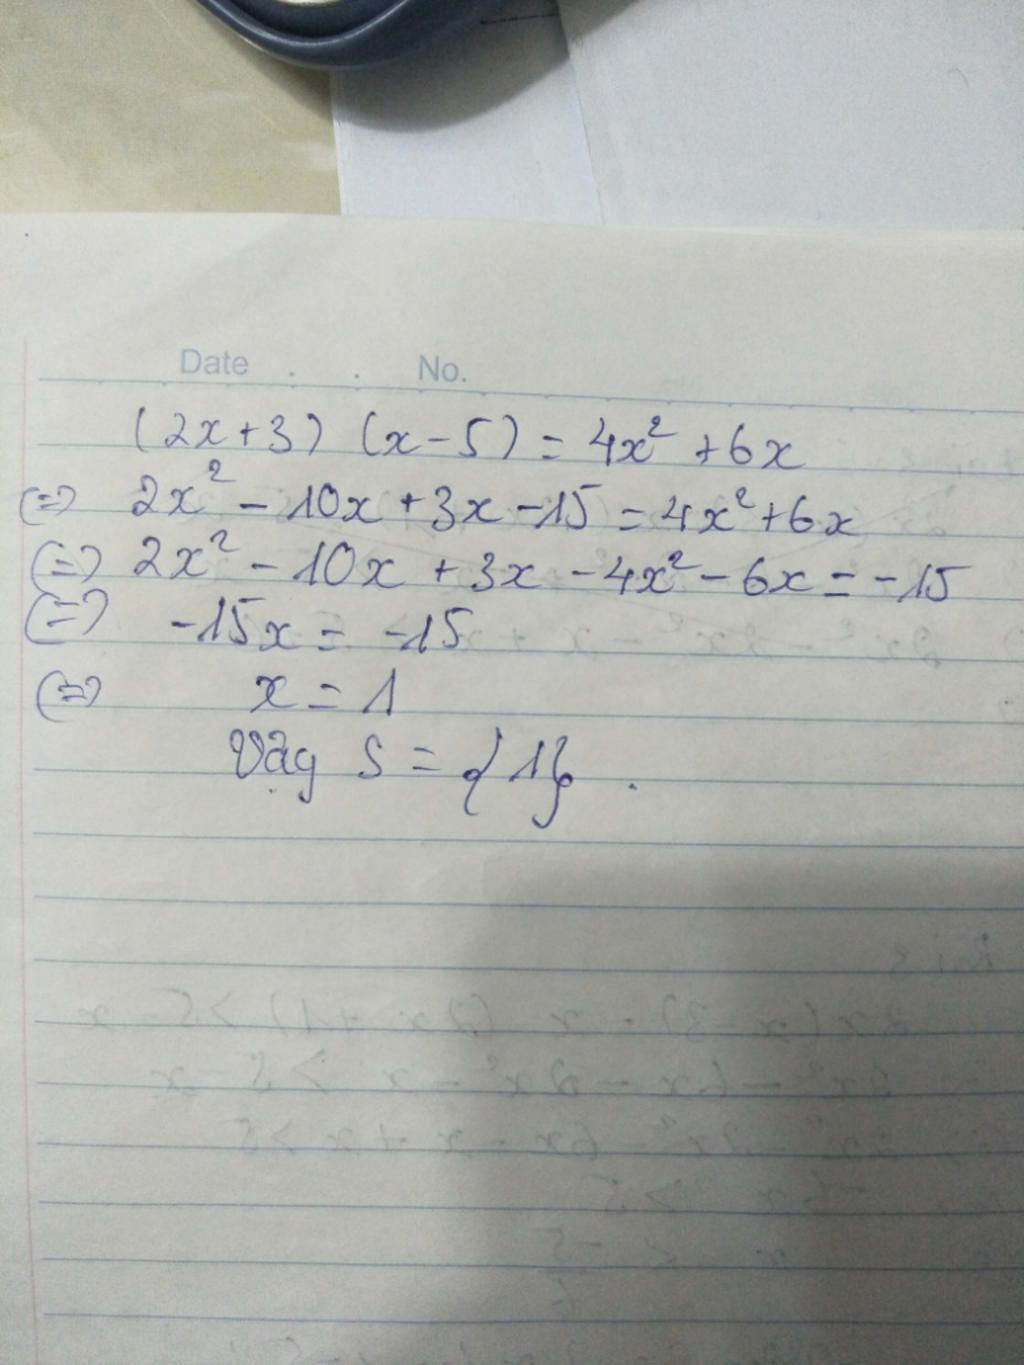 Date . . No.
(2x+3) (x-5) = 4x² +6x
(=) 2x² - 10x +3x -15 = 4x² +6x
(=) 2x² - 10x + 3x - 4x² - 6x = -15
(=) -15x = -15
(=) x = 1
Vậy S = {1} .